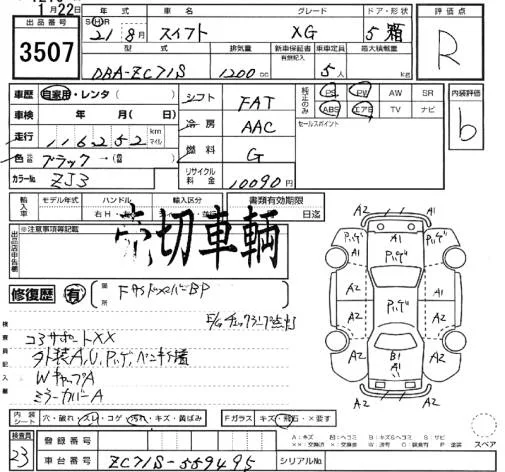 1月22日
出品番号
3507
年式 車名 グレード ドア・形状
SH 21年8月 スイフト XG 5箱
型式 排気量 新車保証書 有無記入 車歴定員 最大積載量
DBA-ZC71S 1200cc 5人 kg
評価点
R
車歴 自家用・レンタ( )
車検 年 月( )
走行 116252 km マイル
色 ブラック→( )
カラーNo. ZJ3
シフト FAT
冷房 AAC
燃料 G
リサイクル料金 10090円
純正のみ
PS PW AW SR
ABS エアB TV ナビ
セールスポイント
内装評価
b
輸入車 モデル年式 ハンドル 輸入区分 書類有効期限
右H 日迄
出品店申告欄
※注意事項等記載
売切車両
修復歴 有 箇所 FクロスメンバーBP
E/Gチェックランプ点灯
検査員記入欄
コアサポートXX
外装A,U,P,ゲ,
WキャップA
ミラーカバーA
内装シート 穴・破れ・スレ・コゲ・汚れ・キズ・黄ばみ Fガラス キズ・飛石・×要す
検査員
23
登録番号
車台番号 ZC71S-559495 シリアルNo.
A2 A1
A1
A2 A2
A2 A2
B1
A1
A2 A1
A2
スペア
A:キズ U:凹ヘコミ B:キズ&ヘコミ S:サビ